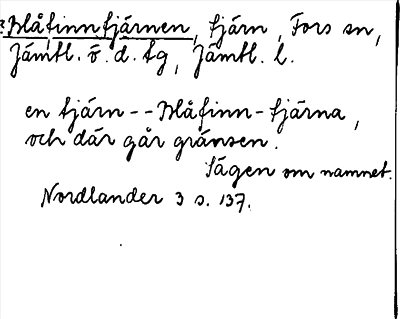 Blåfinntjärnen, tjärn, Fors sn,
Jämtl. ö. d. tg, Jämtl. l.
en tjärn -- Blåfinn-tjärna,
och där går gränsen.
Sägen om namnet.
Nordlander 3 s. 137.